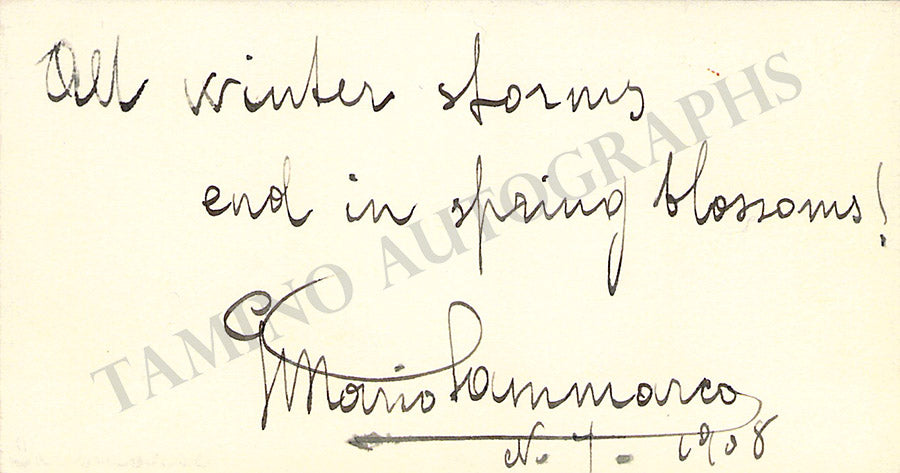 All winter storms
end in spring blossoms!
TAMINO AUTOGRAPHS
G Mario Sammarco
N. Y. 1908